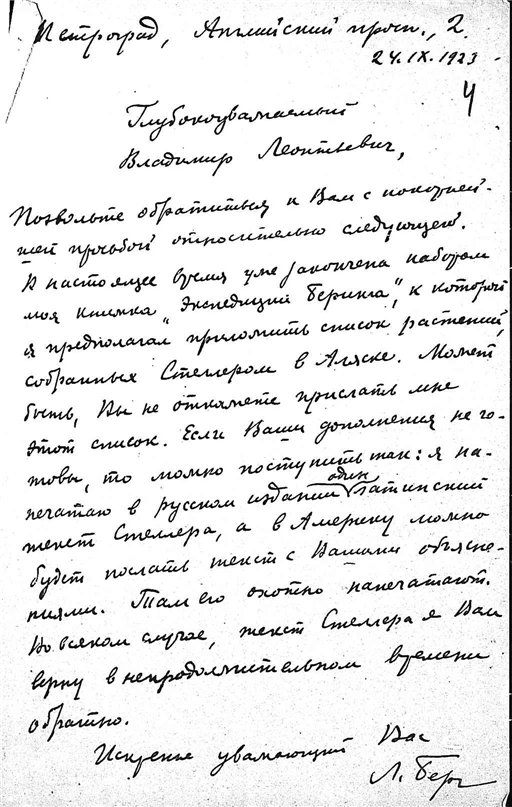 Петроград, Английский просп., 2.
24.IX.1923
4
Глубокоуважаемый
Владимир Леонтьевич,
Позвольте обратиться к Вам с покорней-
шей просьбой относительно следующего.
В настоящее время уже закончена набором
моя книжка "Экспедиция Беринга", к которой
я предполагал приложить список растений,
собранных Стеллером в Аляске. Может
быть, Вы не откажете прислать мне
этот список. Если Ваши дополнения не го-
товы, то можно поступить так: я на-
печатаю в русском издании один латинский
текст Стеллера, а в Америку можно
будет послать текст с Вашими объясне-
ниями. Там его охотно напечатают.
Во всяком случае, текст Стеллера я Вам
верну в непродолжительном времени
обратно.
Искренне уважающий Вас
Л. Берг